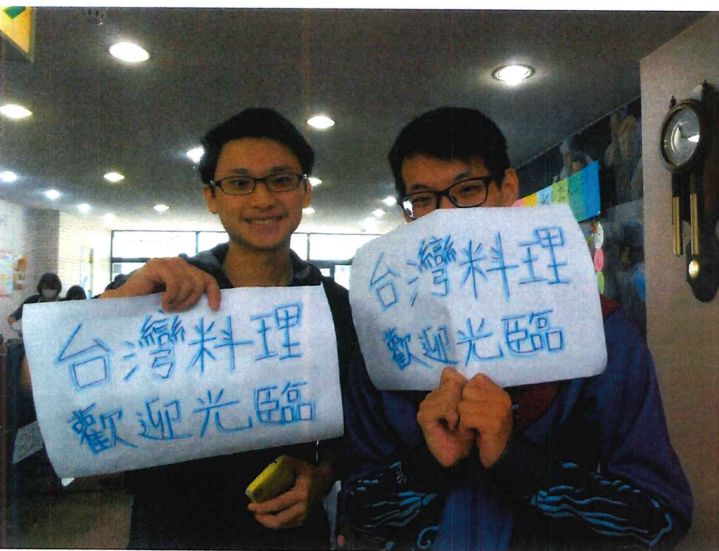 台灣料理
歡迎光臨
台灣料理
歡迎光臨